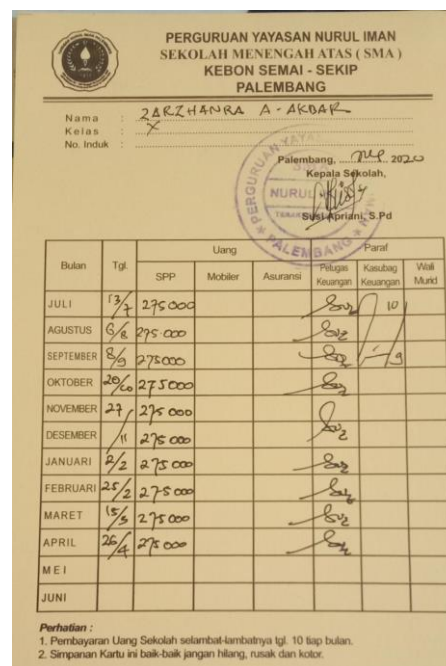 PERGURUAN YAYASAN NURUL IMAN
SEKOLAH MENENGAH ATAS ( SMA )
KEBON SEMAI - SEKIP
PALEMBANG
Nama : ZARZHANRA A - AKBAR
Kelas : X
No. Induk :
Palembang, 2020
Kepala Sekolah,
Susi Apriani, S.Pd
PERGURUAN YAYA
NURUL
PALEMBANG
Bulan Tgl. Uang Paraf
SPP Mobiler Asuransi Petugas Keuangan Kasubag Keuangan Wali Murid
JULI 13/7 275000 10
AGUSTUS 6/8 275.000
SEPTEMBER 8/9 275000 9
OKTOBER 20/10 275000
NOVEMBER 27 275 000
DESEMBER /11 275 000
JANUARI 2/2 275 000
FEBRUARI 25/2 275 000
MARET 15/3 275 000
APRIL 26/4 275 000
MEI
JUNI
Perhatian :
1. Pembayaran Uang Sekolah selambat-lambatnya tgl. 10 tiap bulan.
2. Simpanan Kartu ini baik-baik jangan hilang, rusak dan kotor.